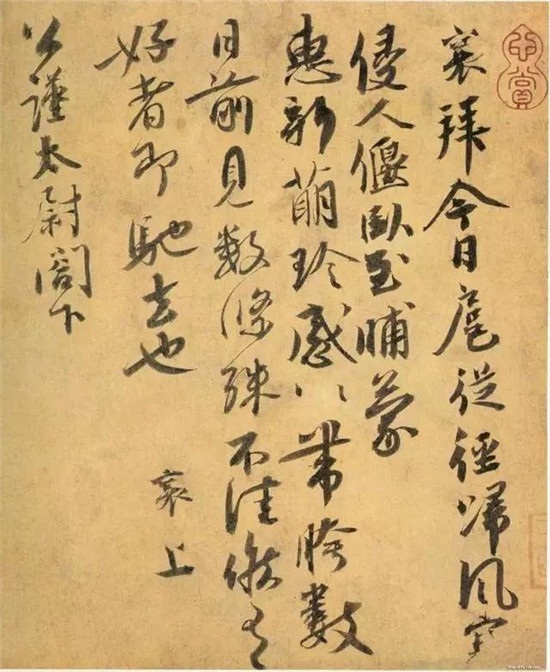 襄拜今日扈從徑歸風寒
侵人偃臥至晡蒙
惠新萌珍感珍感帶胯數
日前見數條殊不佳候有
好者即馳去也
襄上
公謹太尉閣下